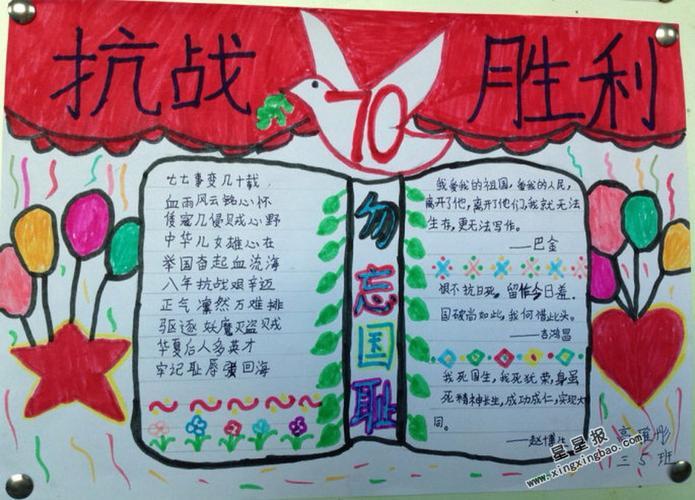 抗战 胜利
70
勿忘国耻
七七事变几十载,
血雨风云铭心怀
倭寇几侵贝戎心野
中华儿女雄心在
举国奋起血流海
八年抗战艰辛迈
正气凛然万难排
驱逐妖魔灭盗贼
华夏后人多英才
牢记耻辱 回海
我爱我的祖国,爱我的人民,
离开了他,离开了他们,我就无法
生存,更无法写作。
——巴金
恨不抗日死,留作今日羞。
国破尚如此,我何惜此头。
——吉鸿昌
我死国生,我死犹荣,身虽
死精神长生,成功成仁,实现大
同。
——赵博生
三5班
星星报
www.xingxingbao.com